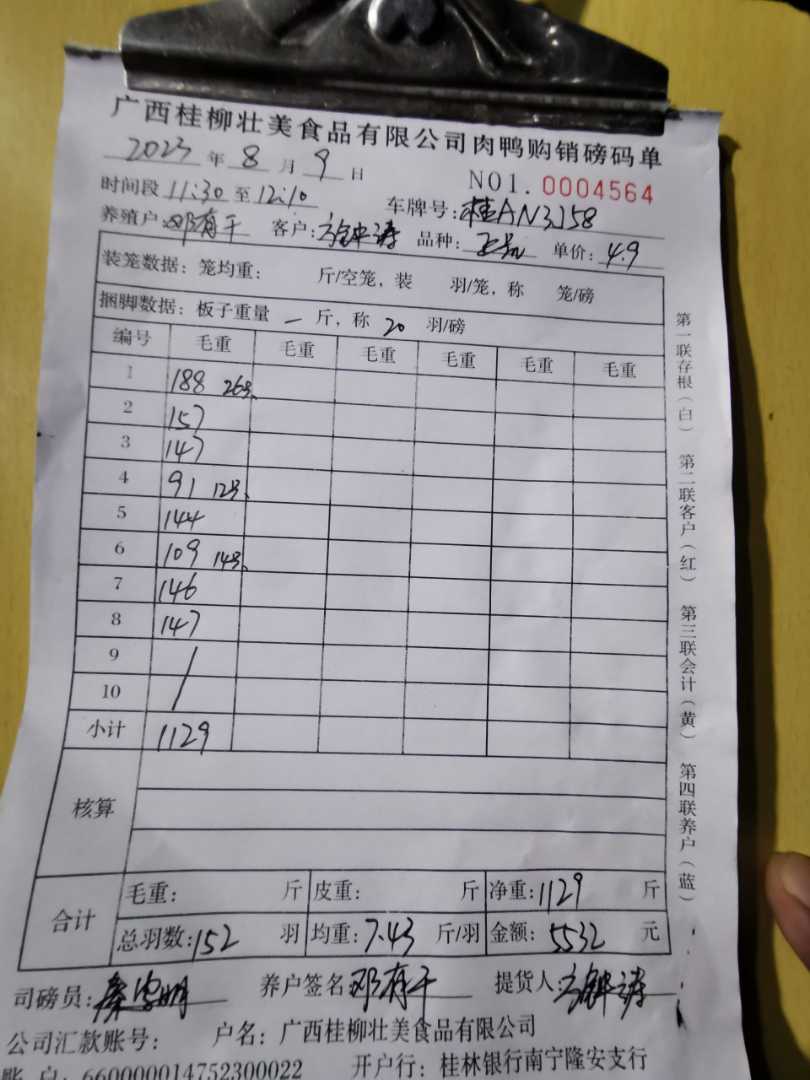 广西桂柳壮美食品有限公司肉鸭购销磅码单
2023年8月9日 NO1.0004564
时间段11:30至12:10 车牌号:桂AN3158
养殖户:邓有干 客户:方钟涛 品种: 单价:4.9
装笼数据:笼均重: 斤/空笼,装 羽/笼,称 笼/磅
捆脚数据:板子重量 一 斤,称 20 羽/磅
编号 毛重 毛重 毛重 毛重 毛重 毛重
1 188 26只
2 157
3 147
4 91 12只
5 144
6 109 14只
7 146
8 147
9 /
10 /
小计 1129
核算
合计 毛重: 斤 皮重: 斤 净重:1129 斤
总羽数:152 羽 均重:7.43 斤/羽 金额:5532 元
司磅员: 养户签名 邓有干 提货人:方钟涛
公司汇款账号: 户名:广西桂柳壮美食品有限公司
账 户:660000014752300022 开户行:桂林银行南宁隆安支行
第一联存根(白) 第二联客户(红) 第三联会计(黄) 第四联养户(蓝)